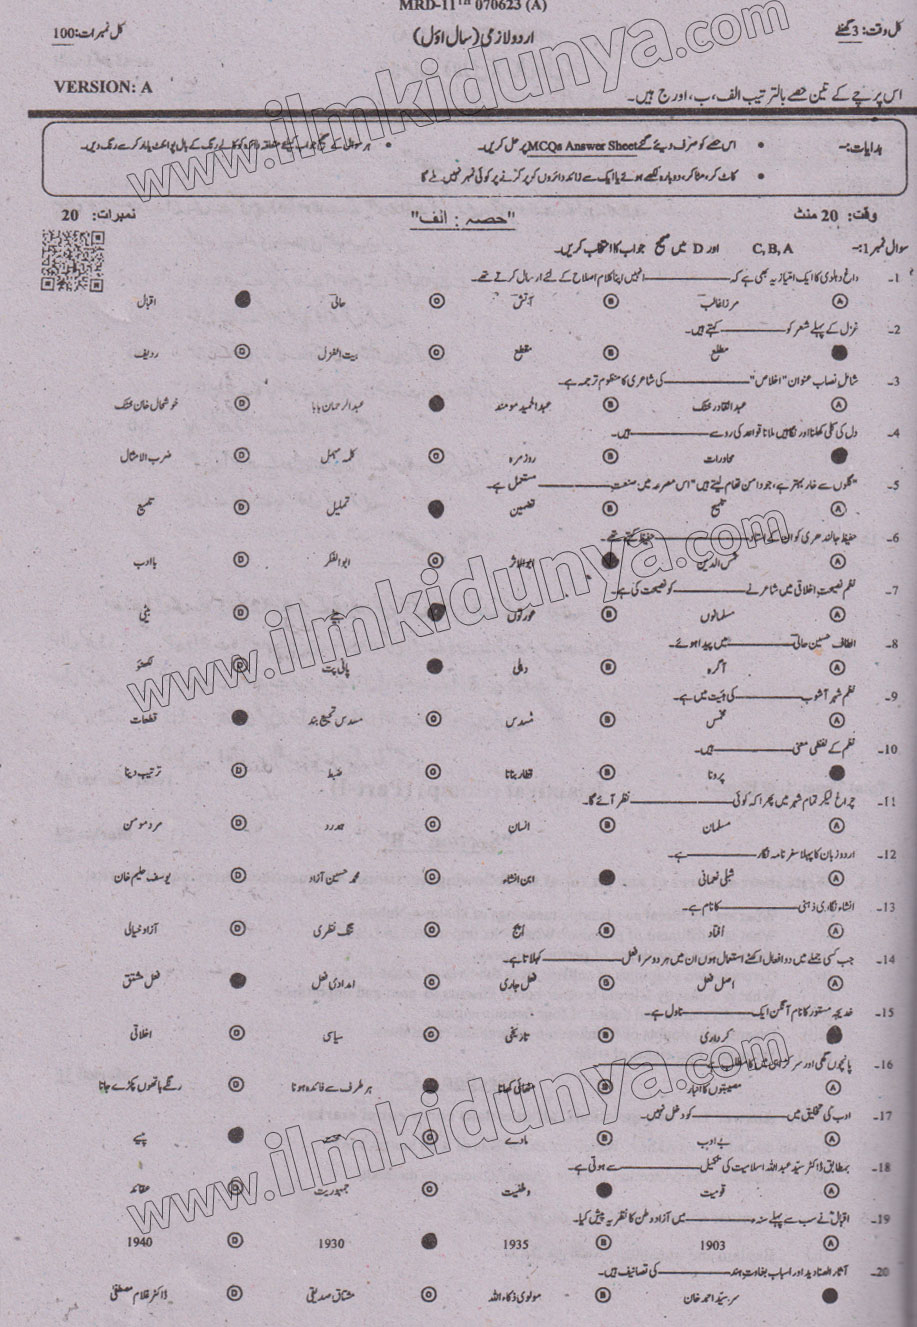 MRD-11TH 070623 (A)
کل وقت: 3 گھنٹے
اردو لازمی (سال اوّل)
کل نمبرات: 100
VERSION: A
اس پرچے کے تین حصے بالترتیب الف، ب، اور ج ہیں۔
ہدایات:-
• اس حصے کو صرف دیئے گئے MCQs Answer Sheet پر حل کریں۔
• ہر سوال کے صحیح جواب کیلئے متعلقہ دائرہ کو کالے رنگ کے بال پوائنٹ یا مارکر سے رنگ دیں۔
• کاٹ کر، مٹا کر، دوبارہ لکھے ہوئے یا ایک سے زائد دائروں کو پر کرنے پر کوئی نمبر نہیں ملے گا
وقت: 20 منٹ
"حصہ : الف"
نمبرات: 20
سوال نمبر 1:- C, B, A اور D میں صحیح جواب کا انتخاب کریں۔
1۔ داغ دہلوی کا ایک امتیاز یہ بھی ہے کہ ________ انہیں اپنا کلام اصلاح کے لئے ارسال کرتے تھے۔
A مرزا غالب B آتش C حالی اقبال
2۔ غزل کے پہلے شعر کو ________ کہتے ہیں۔
مطلع B مقطع C بیت الغزل D ردیف
3۔ شامل نصاب عنوان "اخلاص" ________ کی شاعری کا منظوم ترجمہ ہے۔
A عبدالقادر خٹک B عبدالحمید مومند عبدالرحمان بابا D خوشحال خان خٹک
4۔ دل کی کلی کھلنا اور نگاہیں ملانا قواعد کی رو سے ________ ہیں۔
محاورات B روزمرہ C کلمہ مہمل D ضرب الامثال
5۔ "گلوں سے خار بہتر ہے، جو دامن تھام لیتے ہیں" اس مصرعہ میں صنعتِ ________ مستعمل ہے۔
A تلمیح B تضمین تعلیل D تلمیع
6۔ حفیظ جالندھری کو ان کے استاد ________ حفیظ کہتے تھے۔
A شمس الدین ابوالاثر C ابو الظفر D با ادب
7۔ نظم نصیحتِ اخلاقی میں شاعر نے ________ کو نصیحت کی ہے۔
A مسلمانوں B عورتوں بیٹے D بیٹی
8۔ الطاف حسین حالی ________ میں پیدا ہوئے۔
A آگرہ B دہلی پانی پت D لکھنؤ
9۔ نظم شہر آشوب ________ کی ہیئت میں ہے۔
A مخمس B مسدس C مسدس ترجیع بند قطعات
10۔ نظم کے لفظی معنی ________ ہیں۔
پرونا B قطار بنانا C ضبط D ترتیب دینا
11۔ چراغ لیکر تمام شہر میں پھرا کہ کوئی ________ نظر آئے گا۔
A مسلمان B انسان C ہمدرد D مرد مومن
12۔ اردو زبان کا پہلا سفر نامہ نگار ________ ہے۔
A شبلی نعمانی ابن انشاء C محمد حسین آزاد D یوسف حلیم خان
13۔ انشاء نگاری ذہنی ________ کا نام ہے۔
A اُفتاد B اپج C تنگ نظری D آزاد خیالی
14۔ جب کسی جملے میں دو افعال اکٹھے استعمال ہوں ان میں ہر دوسرا فعل ________ کہلاتا ہے۔
A اصل فعل B فعل جاری C امدادی فعل فعل مشتق
15۔ خدیجہ مستور کا نام آنگن ایک ________ ناول ہے۔
کرداری B تاریخی C سیاسی D اخلاقی
16۔ پانچوں گھی اور سر کڑاہی میں کا مطلب ہے ________
A مصیبتوں کا انبار B مٹھائی کھانا ہر طرف سے فائدہ ہونا D رنگے ہاتھوں پکڑے جانا
17۔ ادب کی تخلیق میں ________ کو دخل نہیں۔
A بے ادب B مادے C محنت پیسے
18۔ بمطابق ڈاکٹر سیّد عبداللہ اسلامیت کی تشکیل ________ سے ہوتی ہے۔
A قومیت وطنیت C جمہوریت D عقائد
19۔ اقبال نے سب سے پہلے سنہ ________ میں آزاد وطن کا نظریہ پیش کیا۔
A 1903 B 1935 1930 D 1940
20۔ آثار الصنادید اور اسباب بغاوتِ ہند ________ کی تصانیف ہیں۔
سر سیّد احمد خان B مولوی ذکاء اللہ C مشتاق صدیقی D ڈاکٹر غلام مصطفیٰ
www.ilmkidunya.com
www.ilmkidunya.com
www.ilmkidunya.com